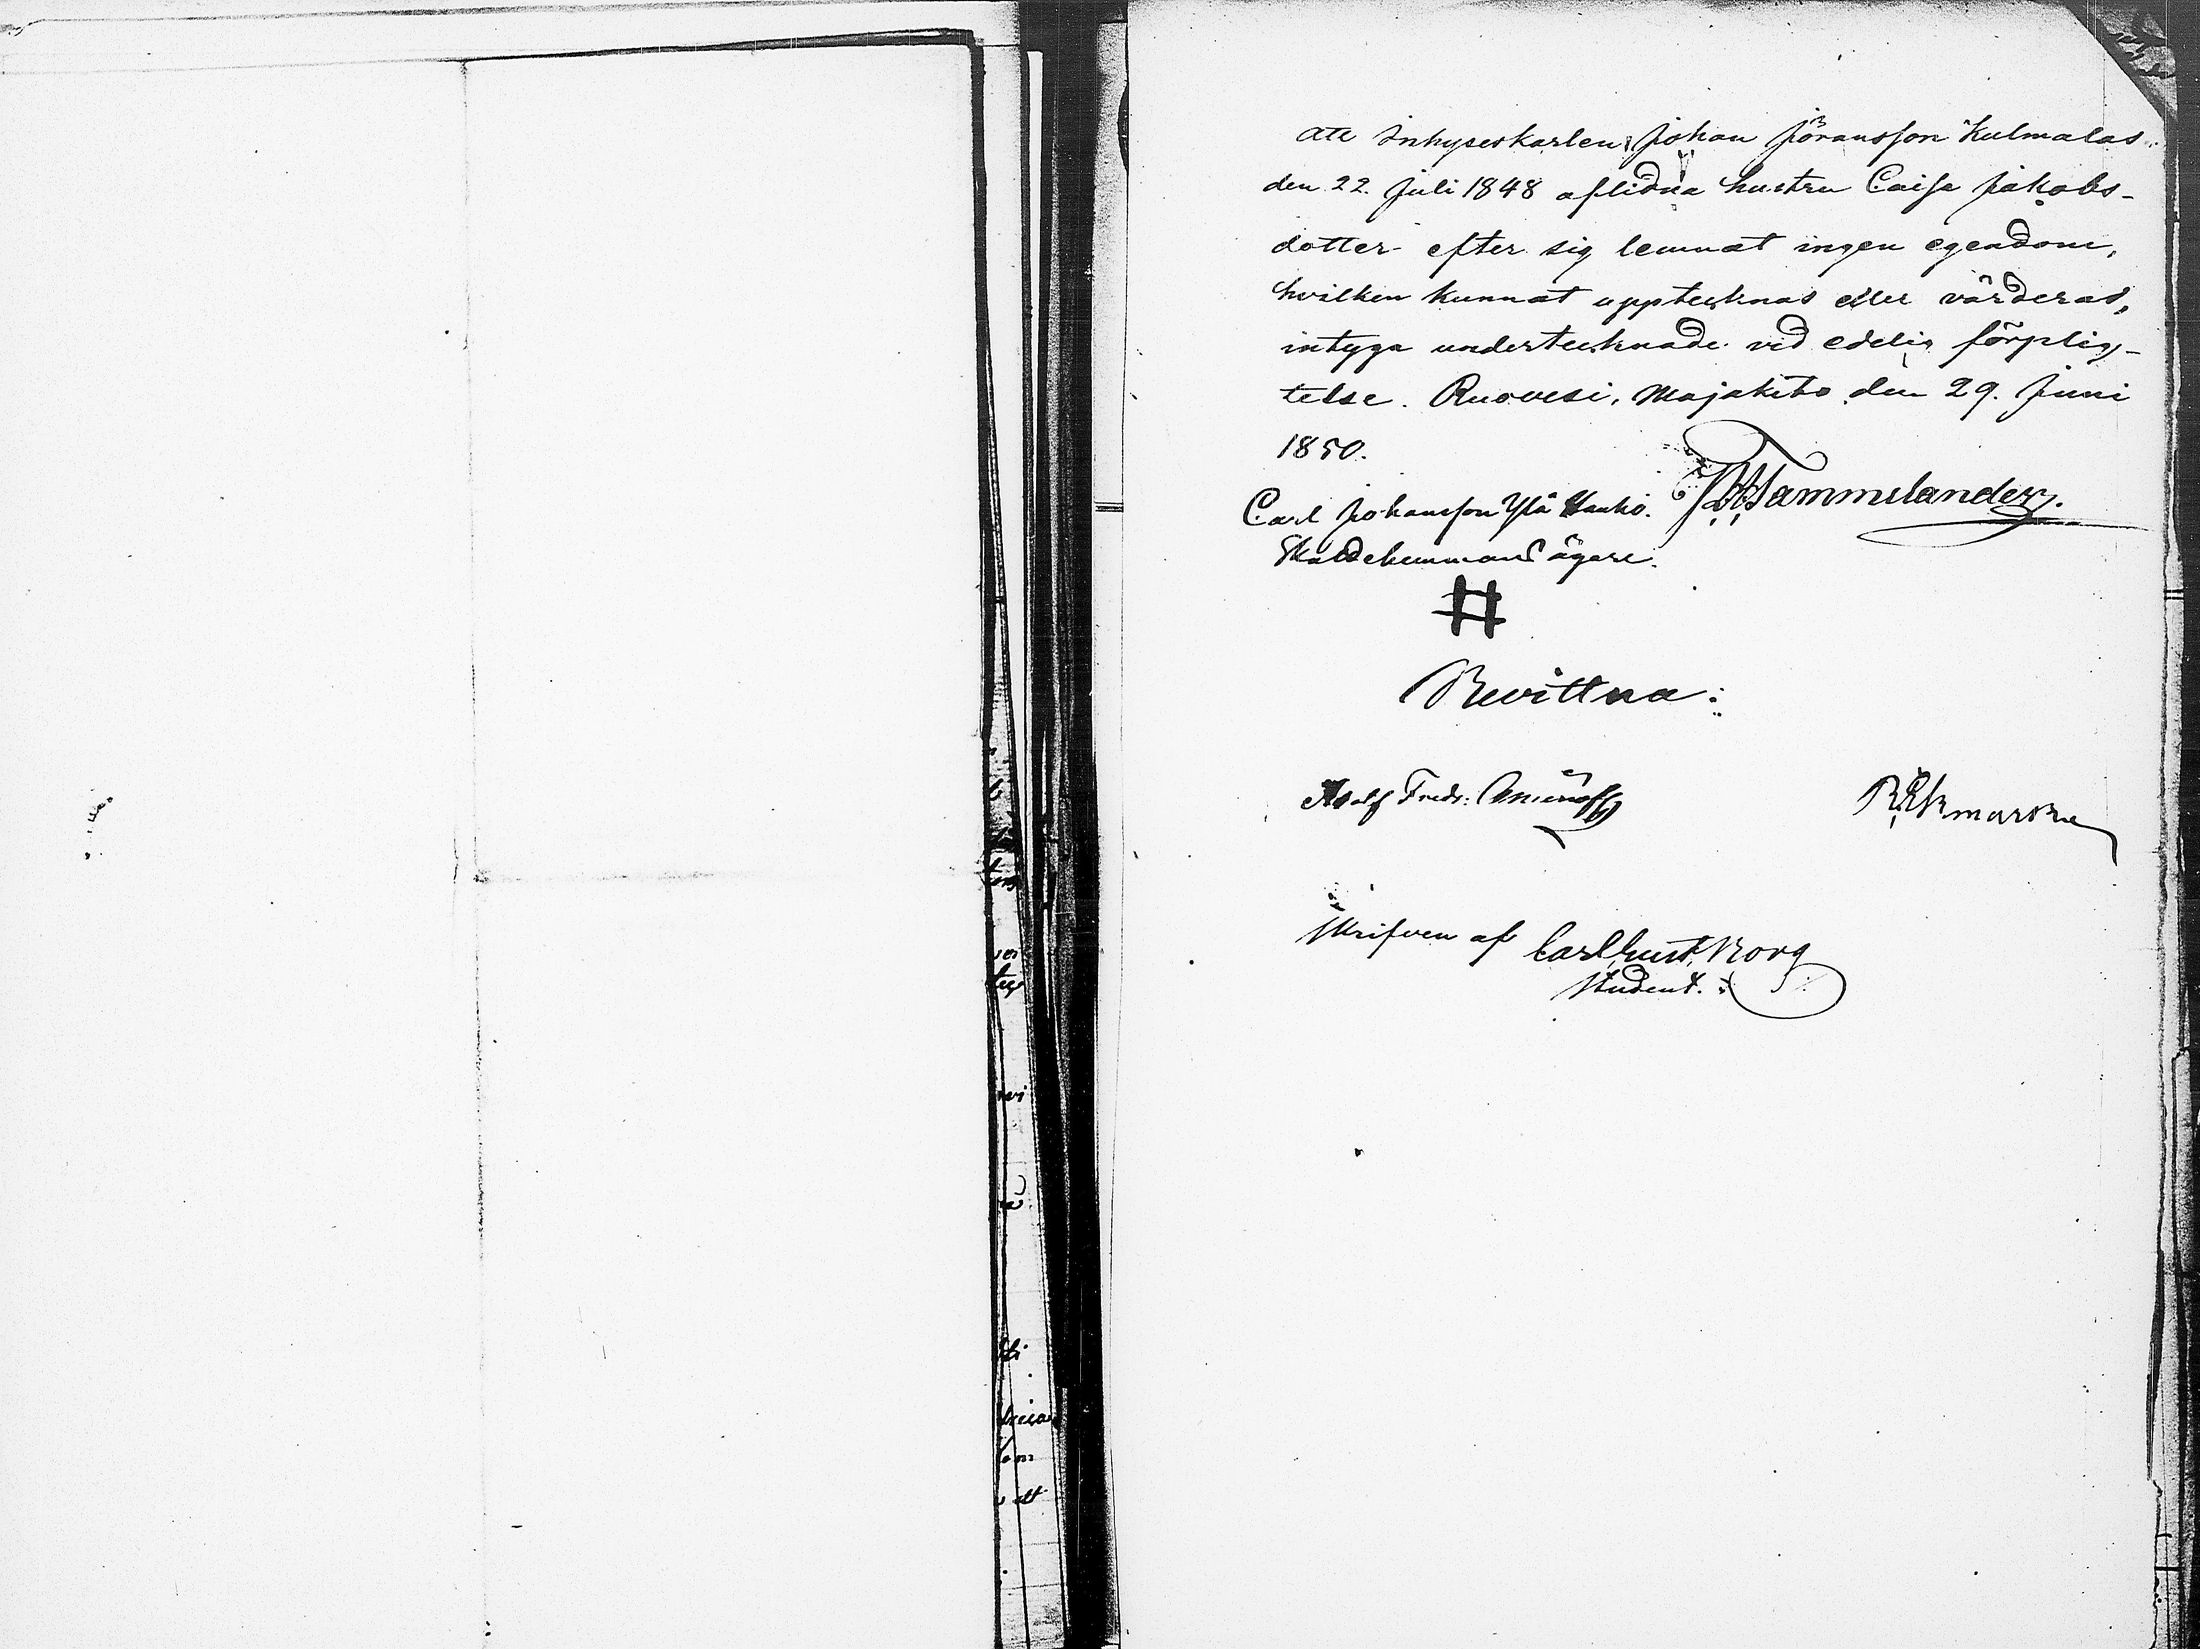 att Inhyseskarlen Johan Jöransson Kulmalas
den 22 Juli 1848 aflidna hustru Caisa Jakobs-
dotter efter sig lemnat ingen egendom,
hvilken kunnat upptecknas eller värderas,
intyga undertecknade vid edelig förplig-
telse. Ruovesi, Majakibo den 29. Juni
1850.
Carl Johansson Ylä Hanho. Tammelander.
Skattehemmans ägare.
#
Bevittna:
Adolf Fredr:
skrifven af Carl Gust. Borg
student.